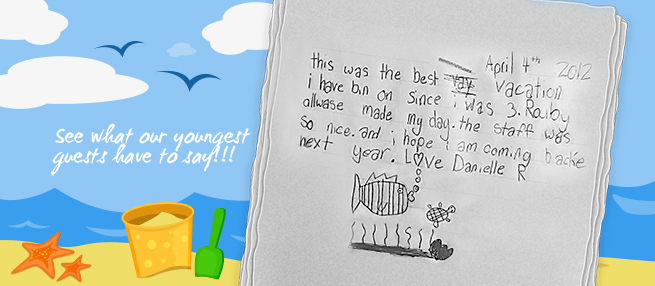 See what our youngest
guests have to say!!!
April 4th 2012
this was the best vacation
i have bin on since i was 3. Roby
allwase made my day. the staff was
so nice. and i hope I am coming backe
next year. Love Danielle R